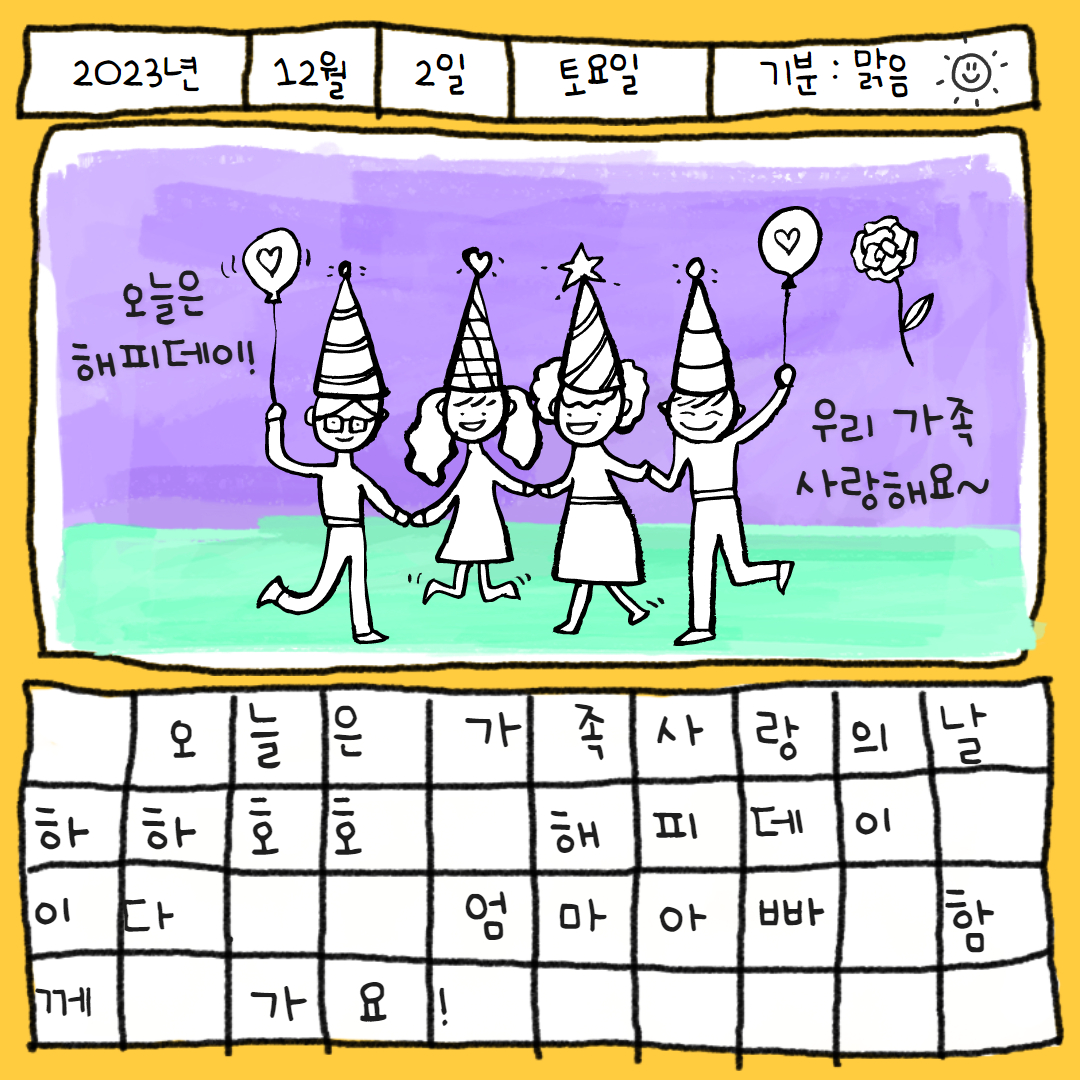 2023년 12월 2일 토요일 기분 : 맑음
오늘은
해피데이!
우리 가족
사랑해요~
오늘은 가족사랑의날
하하호호 해피데이
이다 엄마아빠 함
께 가요!